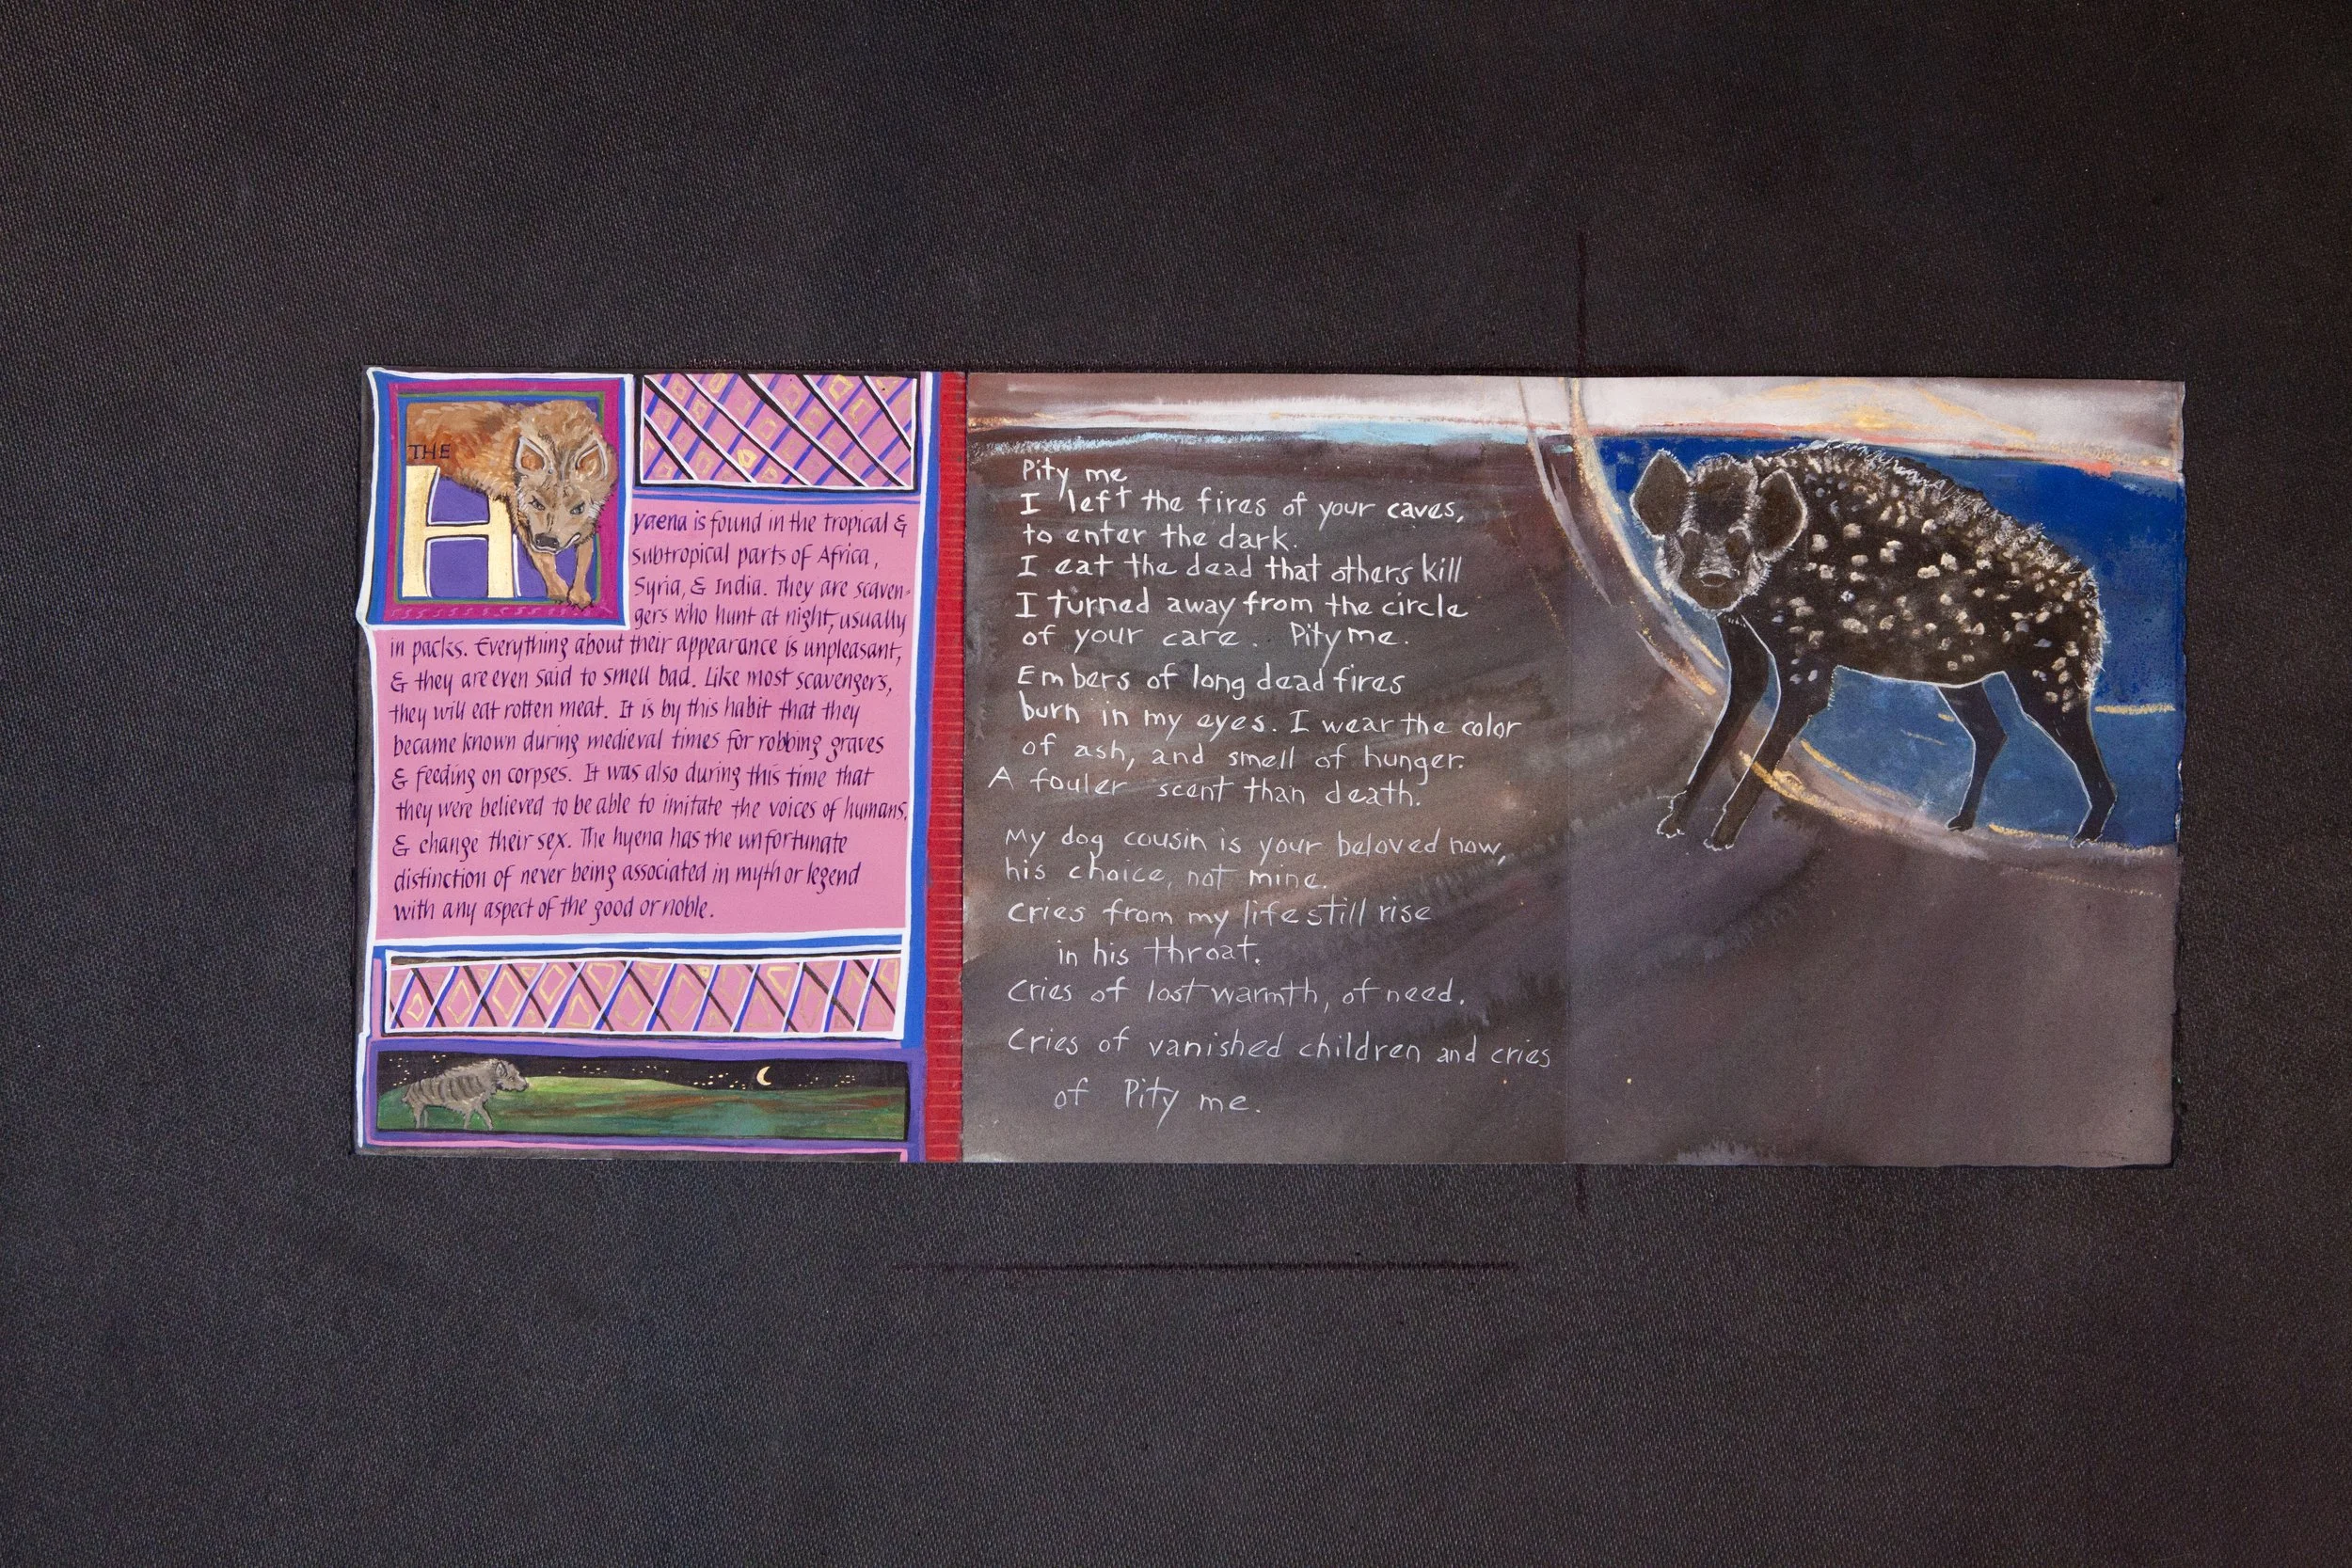 THE
Hyaena is found in the tropical &
subtropical parts of Africa,
Syria, & India. They are scaven-
gers who hunt at night, usually
in packs. Everything about their appearance is unpleasant,
& they are even said to smell bad. Like most scavengers,
they will eat rotten meat. It is by this habit that they
became known during medieval times for robbing graves
& feeding on corpses. It was also during this time that
they were believed to be able to imitate the voices of humans,
& change their sex. The hyena has the unfortunate
distinction of never being associated in myth or legend
with any aspect of the good or noble.
Pity me
I left the fires of your caves,
to enter the dark.
I eat the dead that others kill
I turned away from the circle
of your care. Pity me.
Embers of long dead fires
burn in my eyes. I wear the color
of ash, and smell of hunger.
A fouler scent than death.
My dog cousin is your beloved now,
his choice, not mine.
Cries from my life still rise
in his throat.
Cries of lost warmth, of need.
Cries of vanished children and cries
of Pity me.